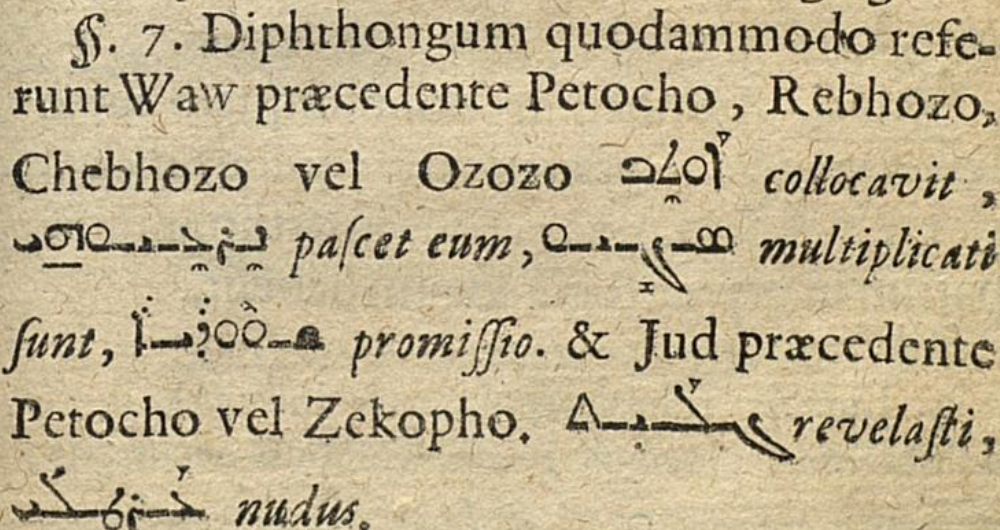 §. 7. Diphthongum quodammodo refe-
runt Waw præcedente Petocho, Rebhozo,
Chebhozo vel Ozozo ܐܘܬܒ collocavit,
ܢܪܥܝܘܗܝ paſcet eum, ܣܓܝܘ multiplicati
ſunt, ܫܘܘܕܝܐ promiſſio. & Jud præcedente
Petocho vel Zekopho. ܓܠܝܬ revelaſti,
ܥܪܛܠܝ nudus.